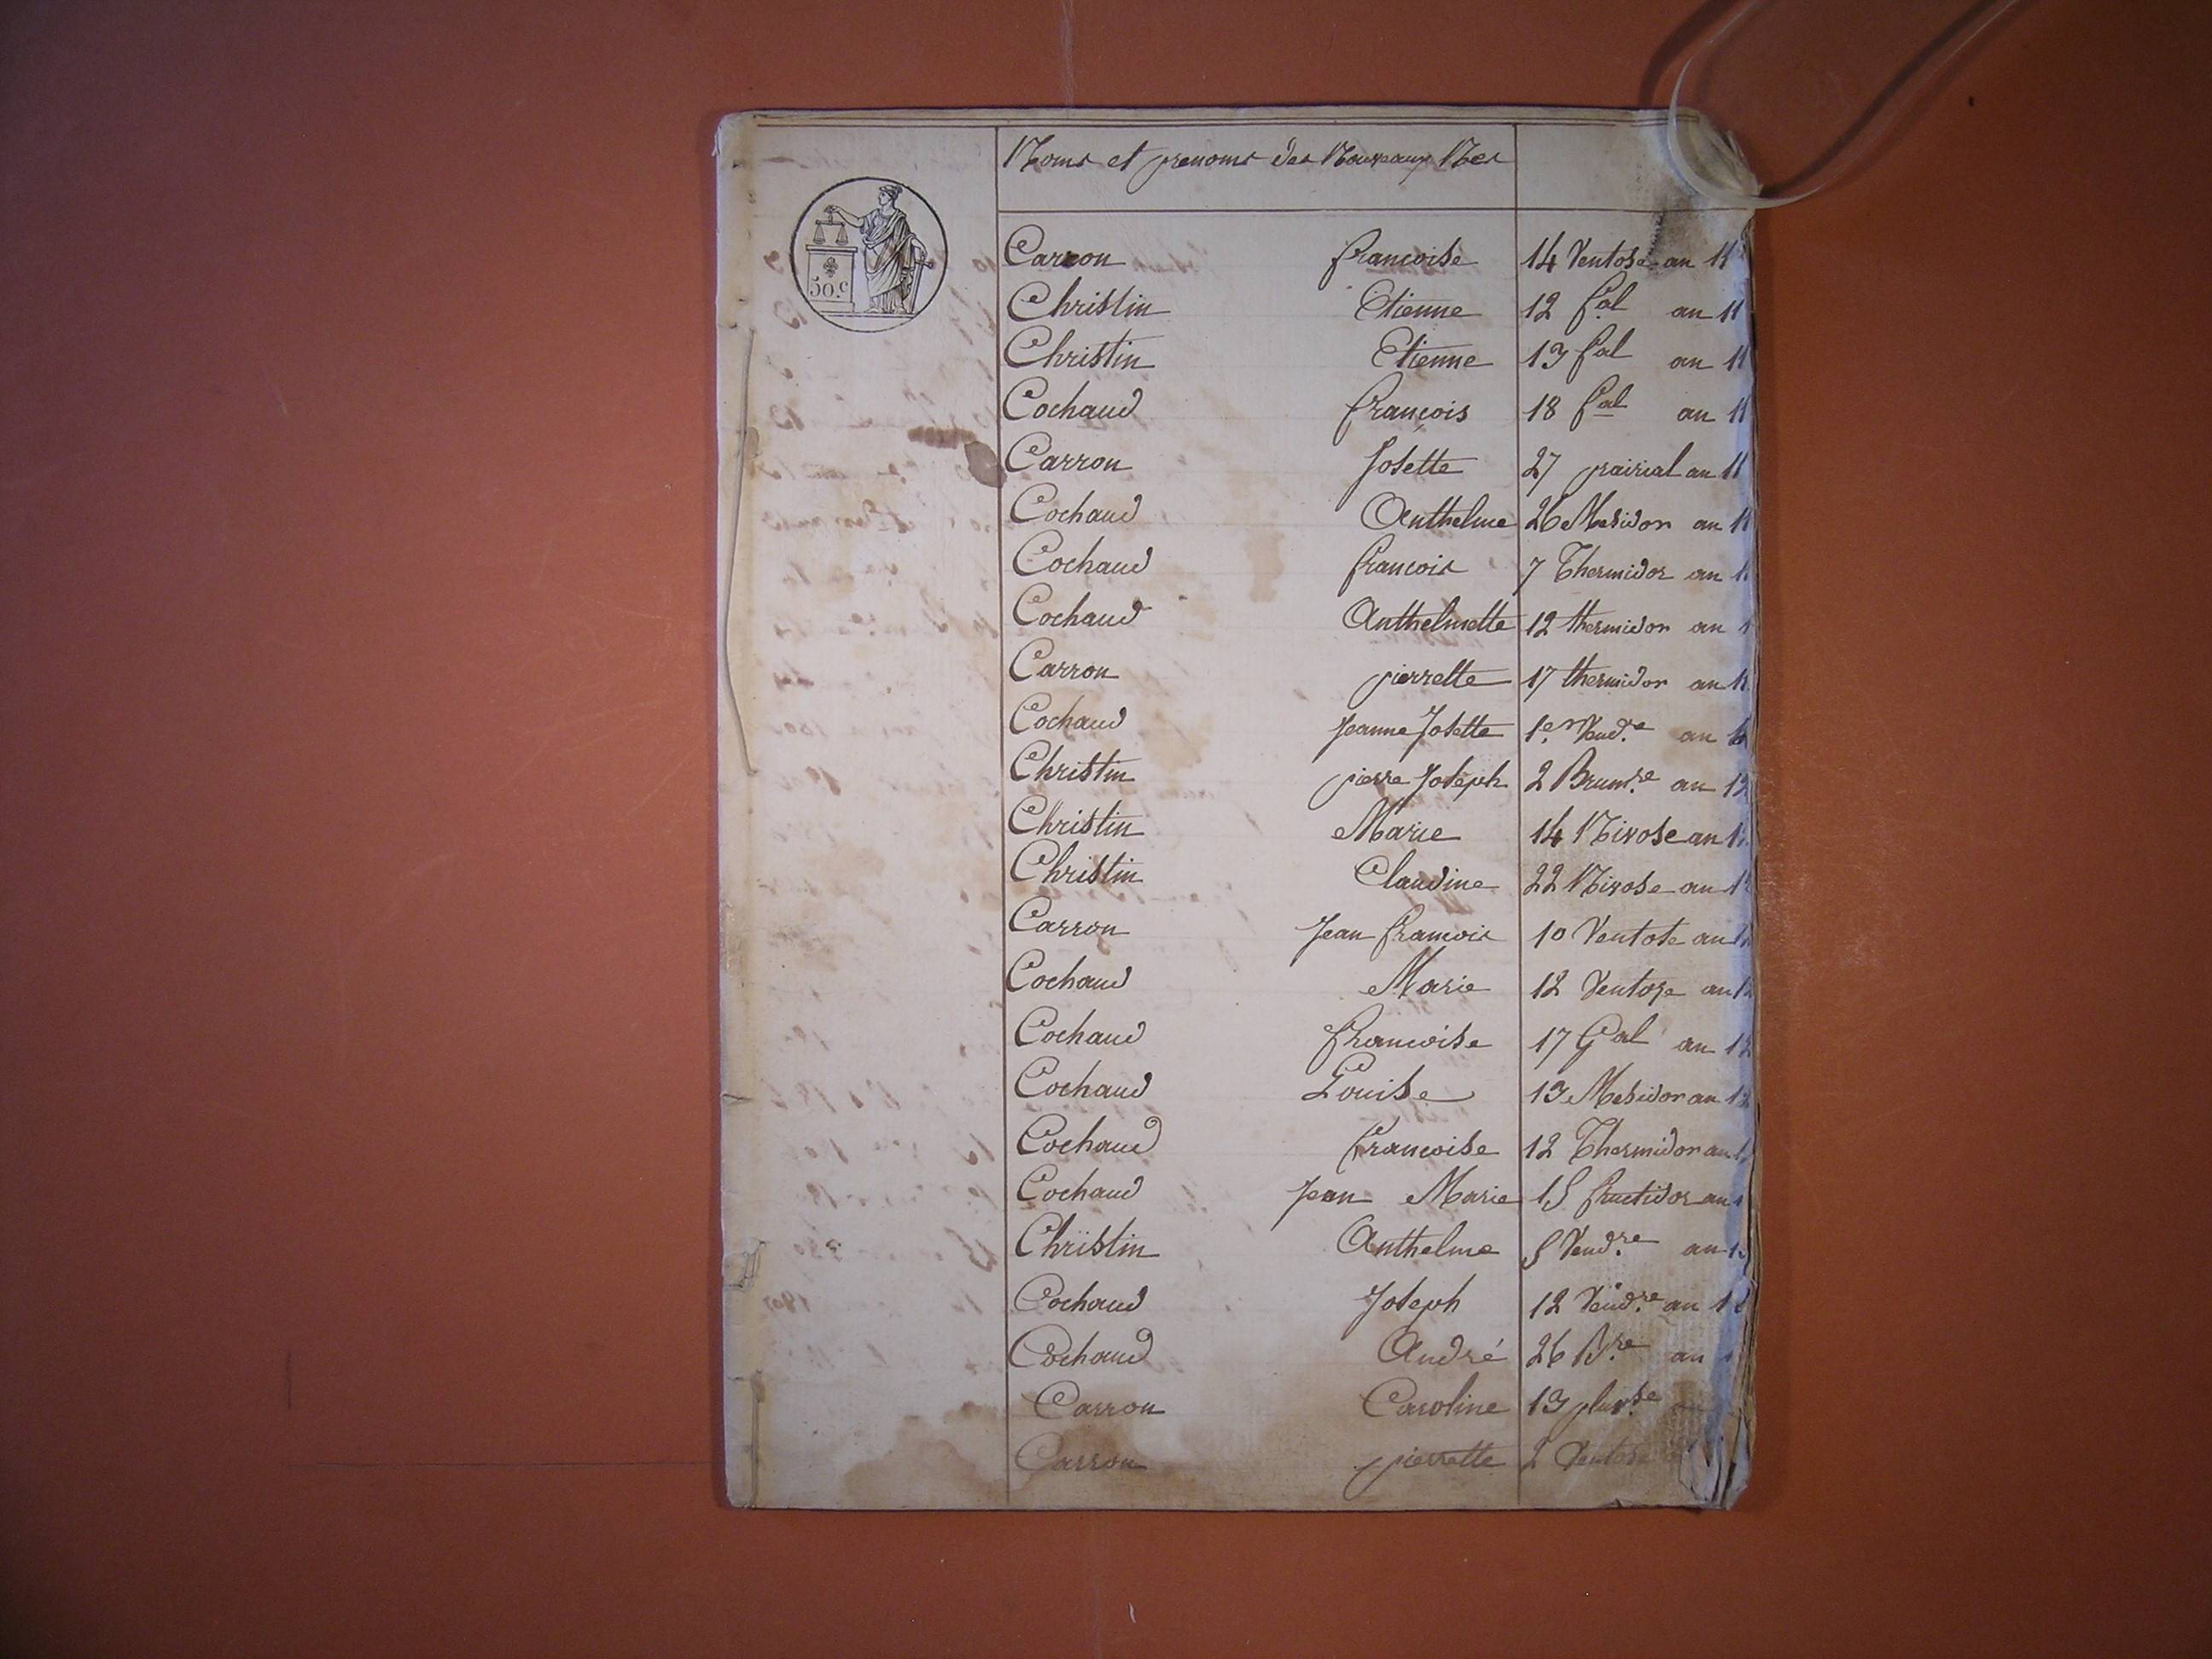 Noms et prenoms des Nouveaux Nés
50.c
Carron francoise 14 Ventose an 11
Christin Etienne 12 f.al an 11
Christin Etienne 13 fal an 11
Cochaud françois 18 fal an 11
Carron Josette 27 prairial an 11
Cochaud Anthelme 26 Mesidor an 11
Cochaud francois 7 Thermidor an
Cochaud Anthelmette 12 thermidor an
Carron pierrette 17 thermidor an 11
Cochaud Jeanne Josette 1er Vend.re an
Christin pierre Joseph 2 Brum.re an 12
Christin Marie 14 Nivose an
Christin Claudine 22 Nivose an
Carron Jean francois 10 Ventose an
Cochaud Marie 12 Ventose an 12
Cochaud francoise 17 Gal an 12
Cochaud Louise 13 Mesidor an 12
Cochaud francoise 12 Thermidor an
Cochaud Jean Marie 15 fructidor an
Christin Anthelme 5 Vend.re an
Cochaud Joseph 12 Vend.re an
Cochaud André 26 B.re an
Carron Caroline 13 pluv.se
Carron pierrette 2 Ventose